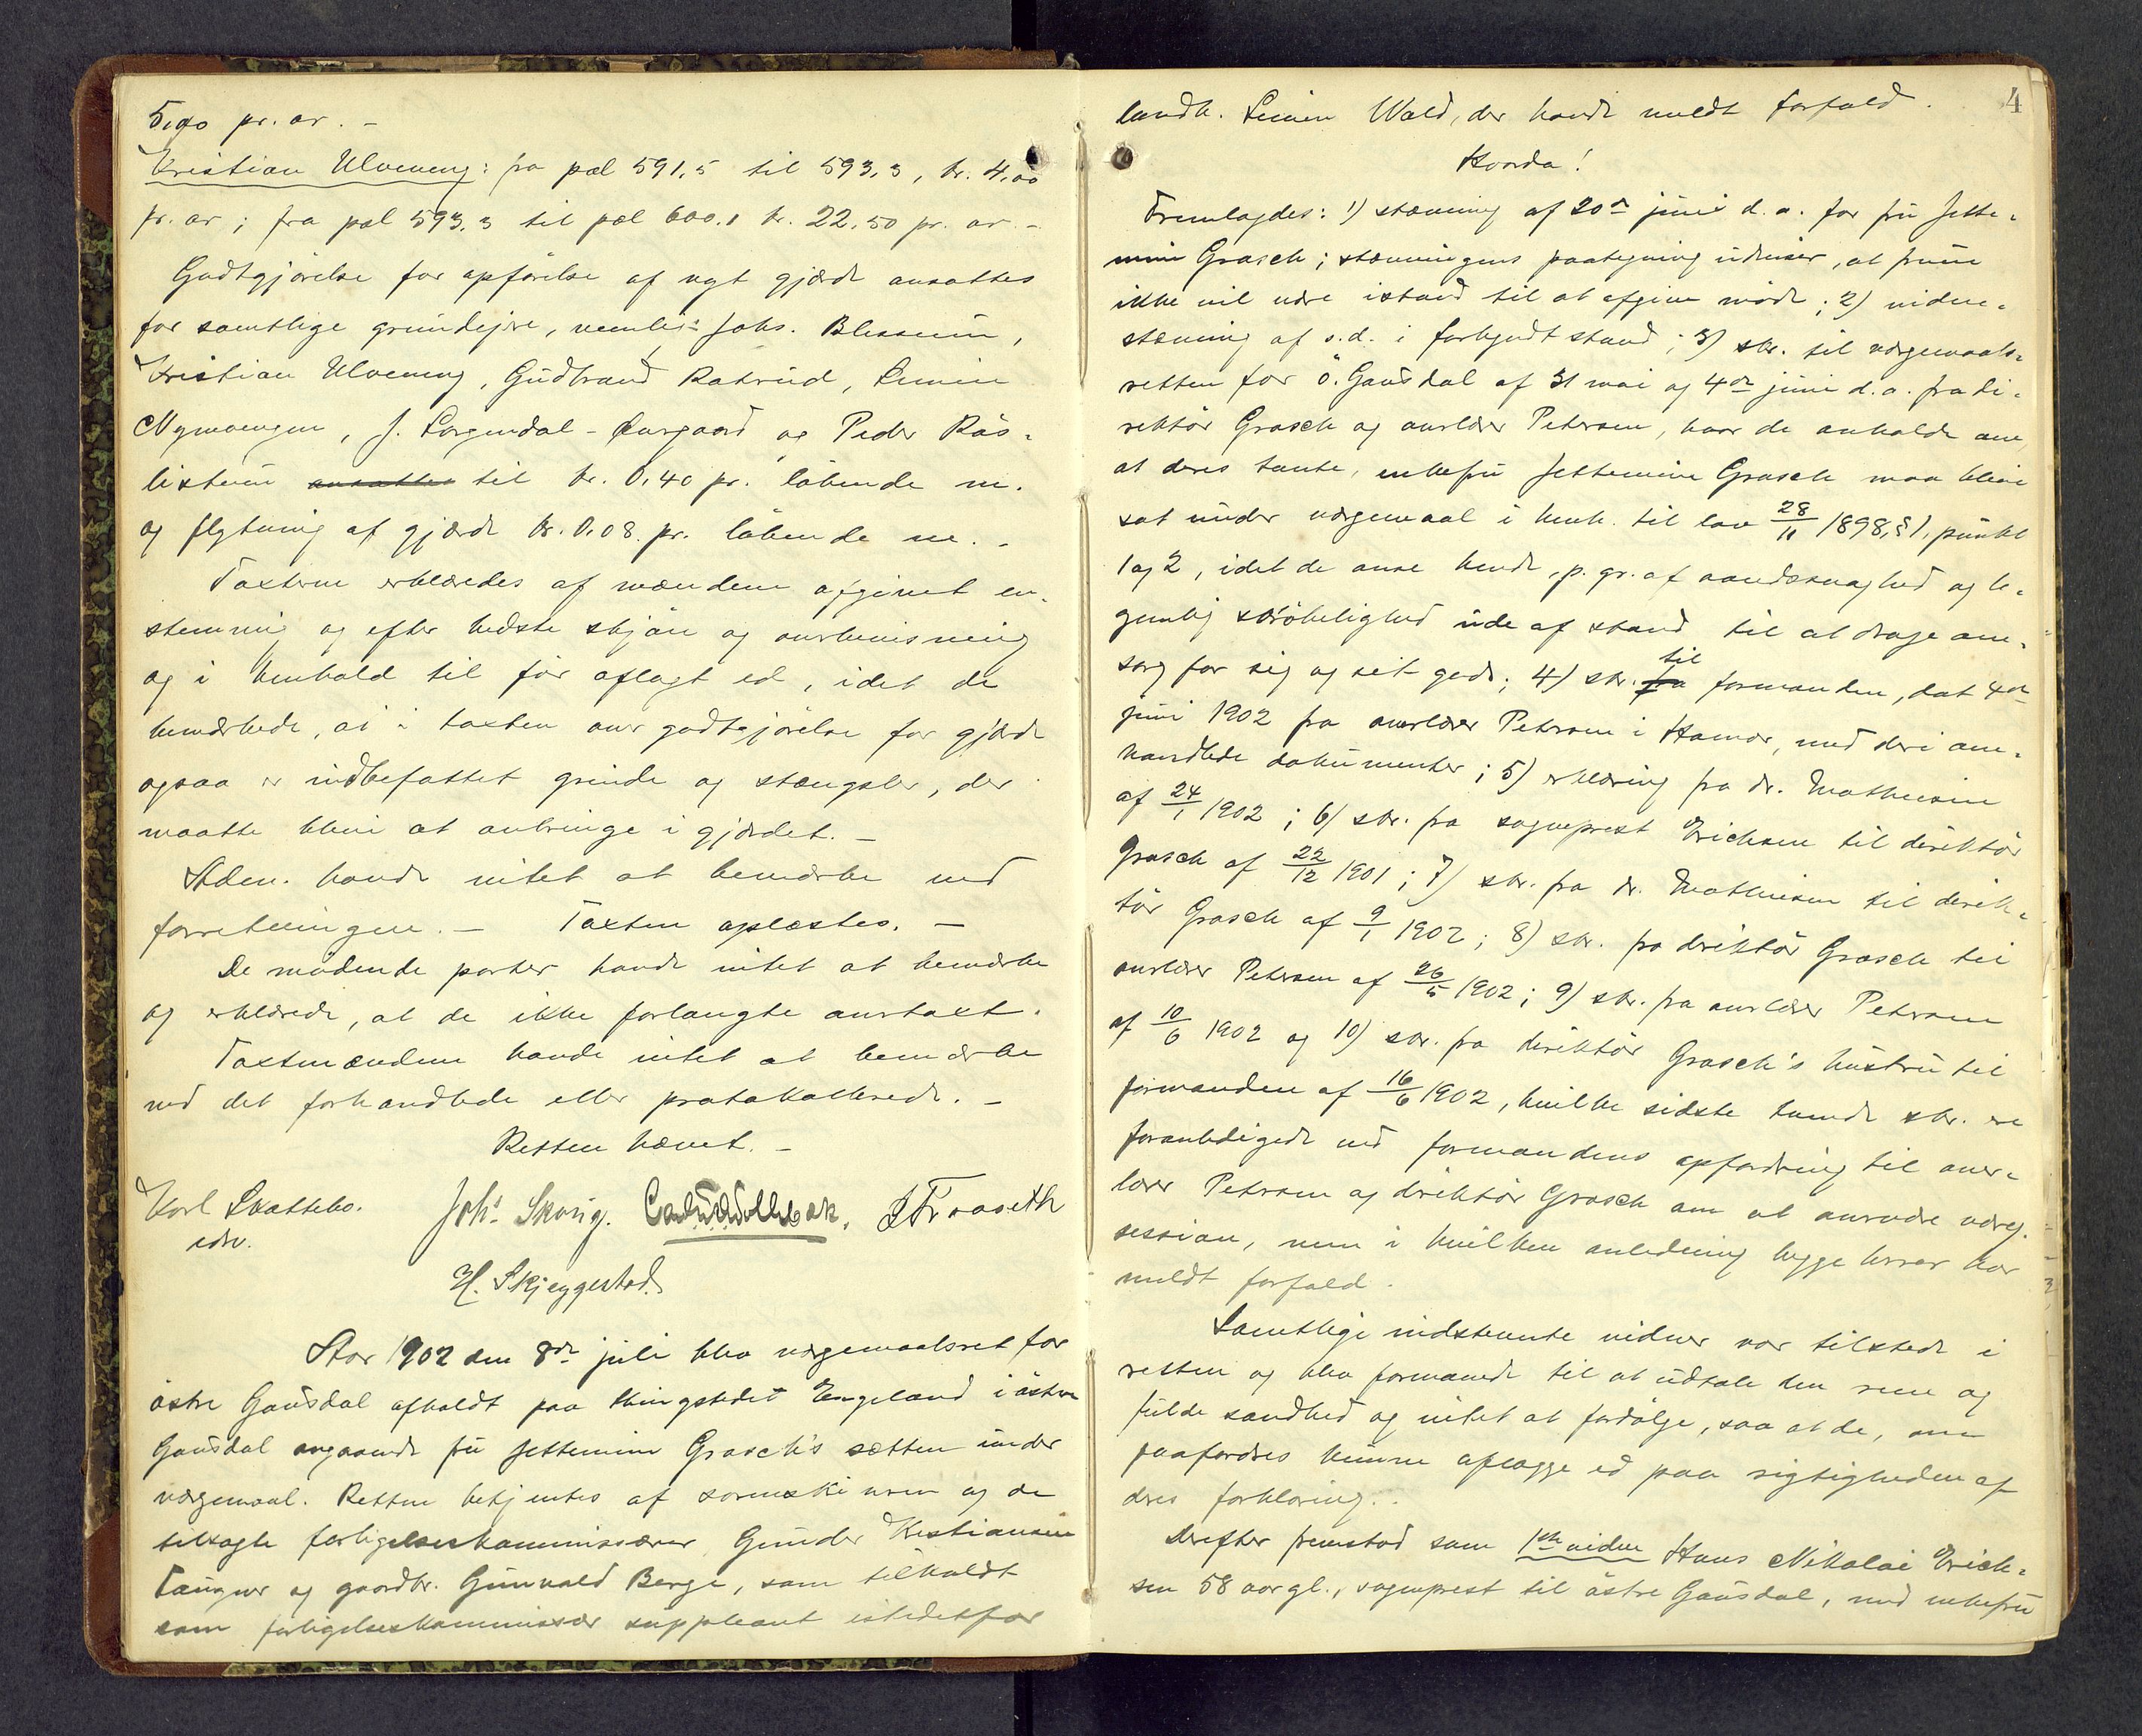 5,00 pr. ar. –
Kristian Ulveneng: fra pæl 591,5 til 593,3, kr. 4,00
pr. ar; fra pæl 593,3 til pæl 600.1 kr. 22,50 pr. ar. –
Godtgjörelse for opförelse af nyt gjærde ansattes
for samtlige grundejere, nemlig: Johs. Blessum,
Kristian Ulveneng, Gudbrand Rakrud, Simen
Nymoengen, J. Sorgendal-Aurgaard og Peder Rös-
listuen ansattes til kr. 0,40 pr. löbende m.
og flytning af gjærde kr. 0,08. pr. löbende m. –
Taxterne erklæredes af mændene afgivet en-
stemmig og efter bedste skjön og overbevisning
og i henhold til för aflagt ed, idet de
bemærkede, at i taxten over godtgjörelse for gjærde
ogsaa er indbefattet grinde og stængsler, der
maatte blive at anbringe i gjærdet. –
Adm. havde intet at bemærke ved
forretningen. – Taxten oplæstes. –
De mödende parter havde intet at bemærke
og erklærede, at de ikke forlangte overtaxt.
Taxtmændene havde intet at bemærke
ved det forhandlede eller protokollerede. –
Retten hævet. –
Karl Skattebo. Johs Skorig. J Fraaseth
edsv.
H. Skjeggestad.
Aar 1902 den 8de juli blev værgemaalsret for
östre Gausdal afholdt paa thingstedet Engeland i östre
Gausdal angaaende fru Jettemine Grosch's sætten under
værgemaal. Retten betjentes af sorenskriveren og de
tilsagte forligelseskommissærer, Gunder Kristiansen
Taugner og gaardbr. Gunvald Berge, som tilkaldt
som forligelseskommissær suppleant istedetfor
4
landh. Simen Wold, der havde meldt forfald.
Hvorda!
Fremlagdes: 1) stævning af 20de juni d.a. for fru Jette-
mine Grosch; stævningens paategning udviser, at fruen
ikke vil være istand til at afgive möde; 2) vidne-
stævning af s.d. i forkyndt stand; 3) skr. til værgemaals-
retten for Ö. Gausdal af 31 mai og 4de juni d.a. fra di-
rektör Grosch og overlærer Petersen, hvor de anholde om,
at deres tante, enkefru Jettemine Grosch maa blive
sat under værgemaal i henh. til lov 28/11 1898, § 1, punkt
1 og 2, idet de anse hende p. gr. af aandssvaghed og le-
gemlig skröbelighed ude af stand til at drage om-
sorg for sig og sit gods; 4) skr. fra til formanden, dat 4de
juni 1902 fra overlærer Petersen i Hamar, med deri om-
handlede dokumenter; 5) erklæring fra dr. Mathiesen
af 24/1 1902; 6) skr. fra sogneprest Erichsen til direktör
Grosch af 22/12 1901; 7) skr. fra dr. Mathiesen til direk-
tör Grosch af 9/1 1902; 8) skr. fra direktör Grosch til
overlærer Petersen af 26/5 1902; 9) skr. fra overlærer Petersen
af 10/6 1902 og 10) skr. fra direktör Grosch's hustru til
formanden af 16/6 1902, hvilke sidste tvende skr. ere
foranledigede ved formandens opfordring til over-
lærer Petersen og direktör Grosch om at overvære værg.
session, men i hvilken anledning begge herrer har
meldt forfald.
Samtlige indstevnte vidner var tilstede i
retten og blev formanede til at udtale den rene og
fulde sandhed og intet at fordölge, saa at de, om
paafordres kunne aflægge ed paa rigtigheden af
deres forklaring.
Derefter fremstod som 1ste vidne Hans Nikolai Erich-
sen 58 aar gl., sogneprest til östre Gausdal, med enkefru